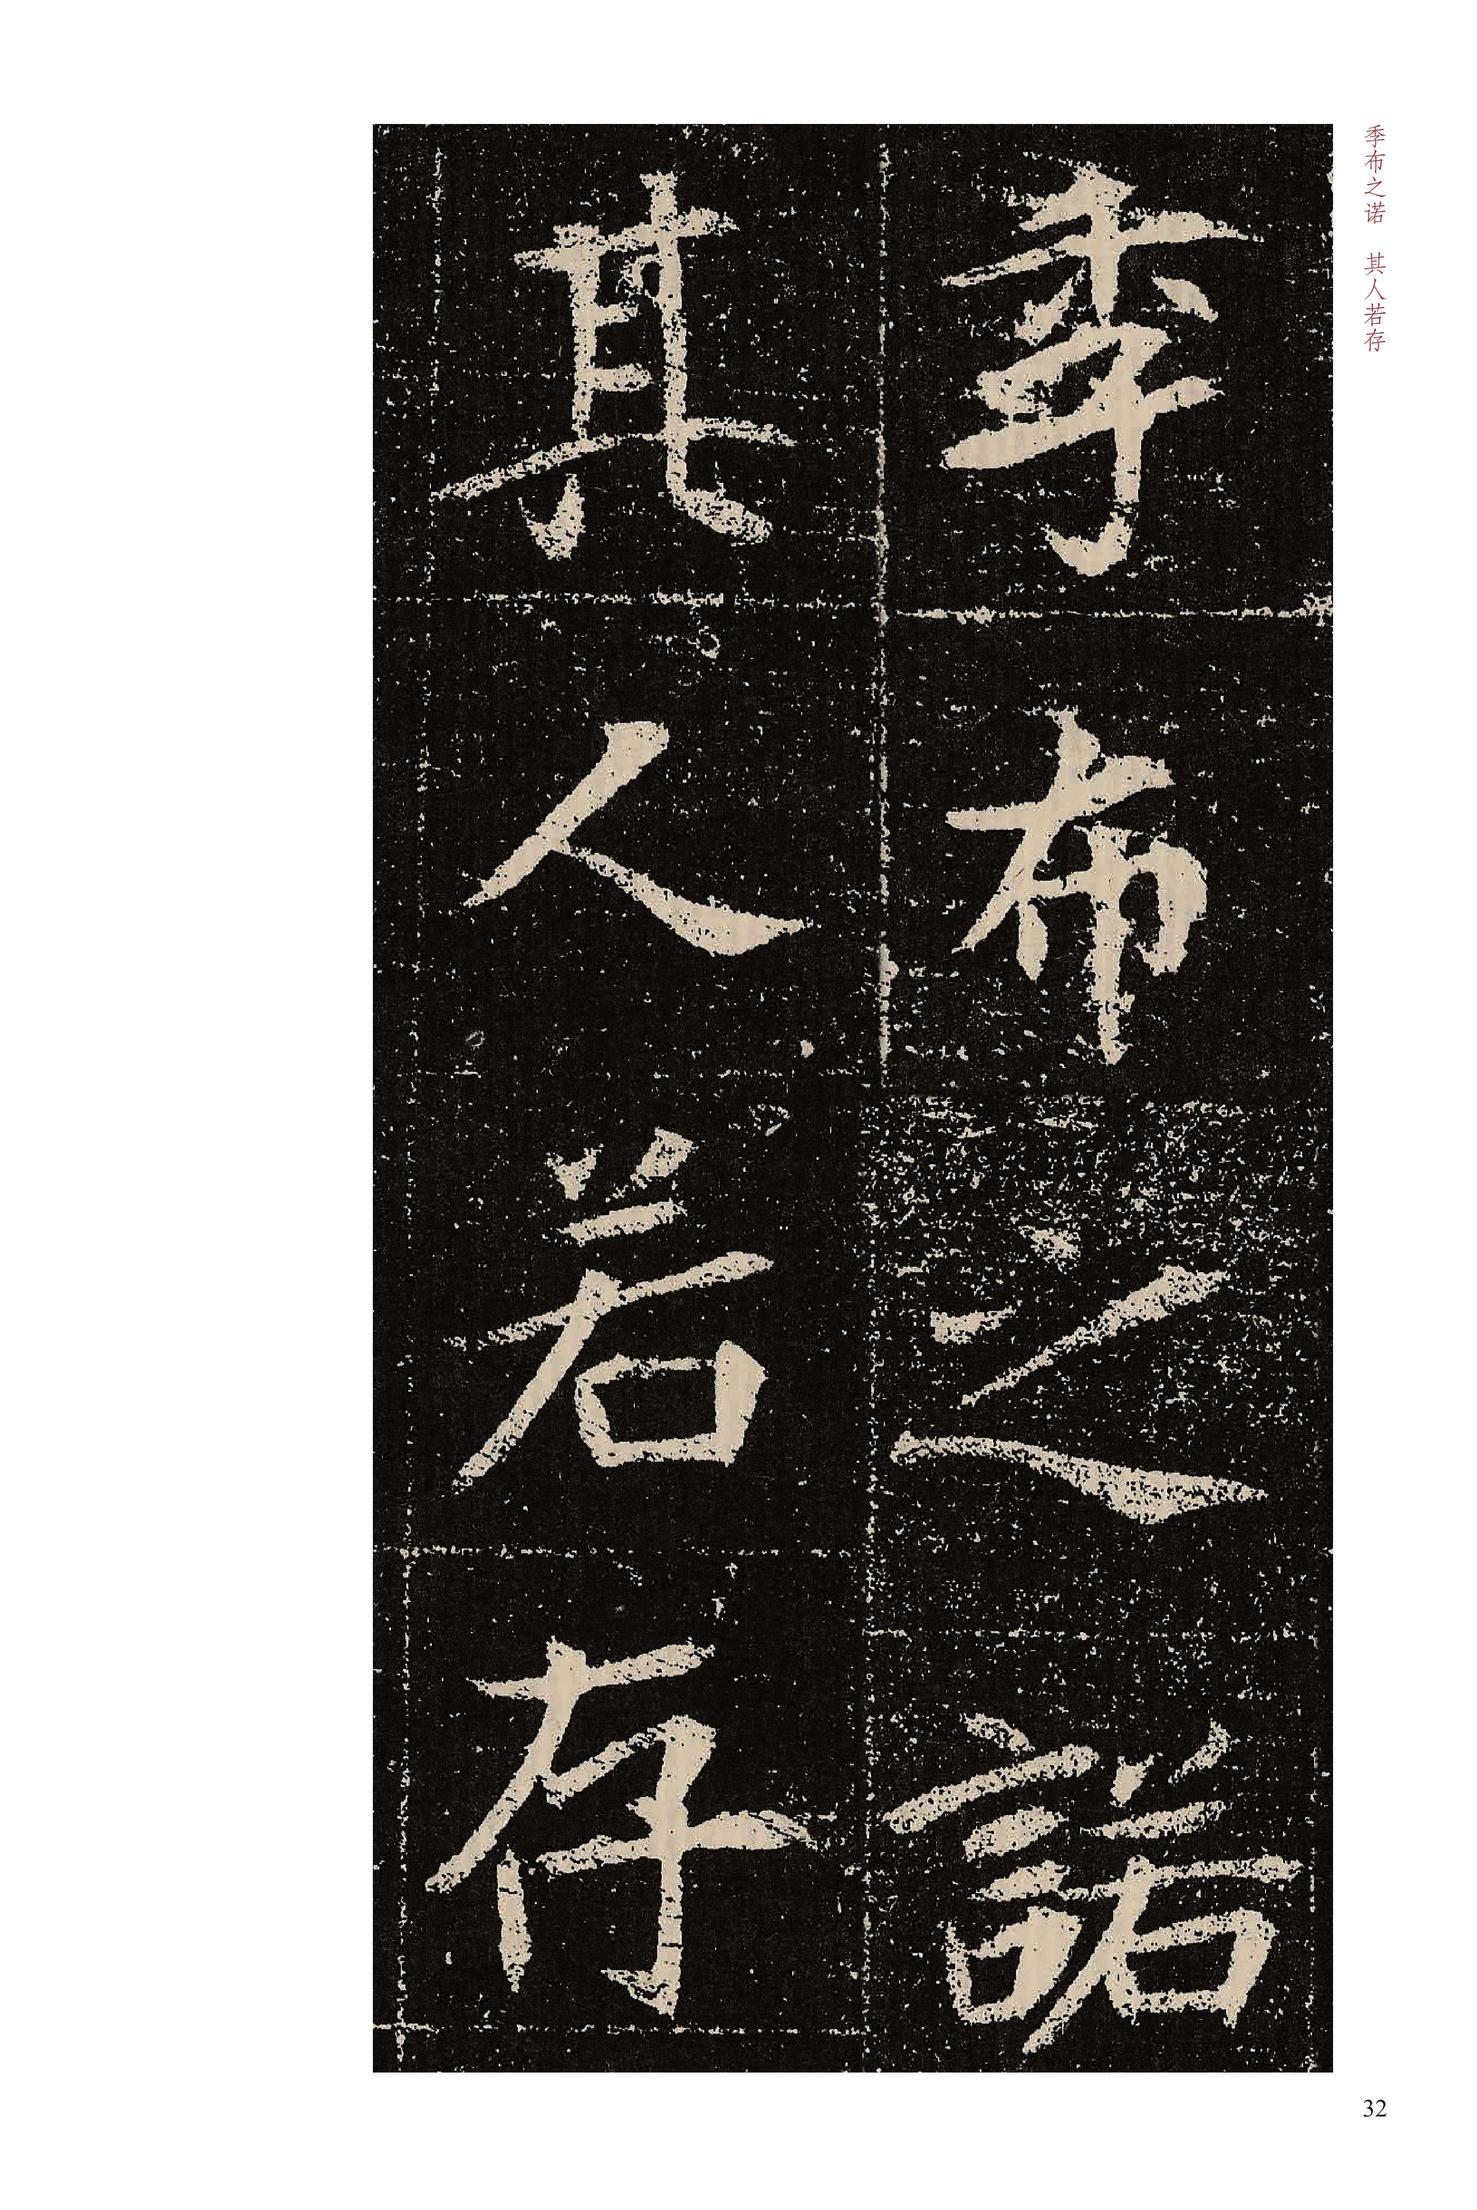 季布之諾
其人若存
季布之诺　其人若存
32